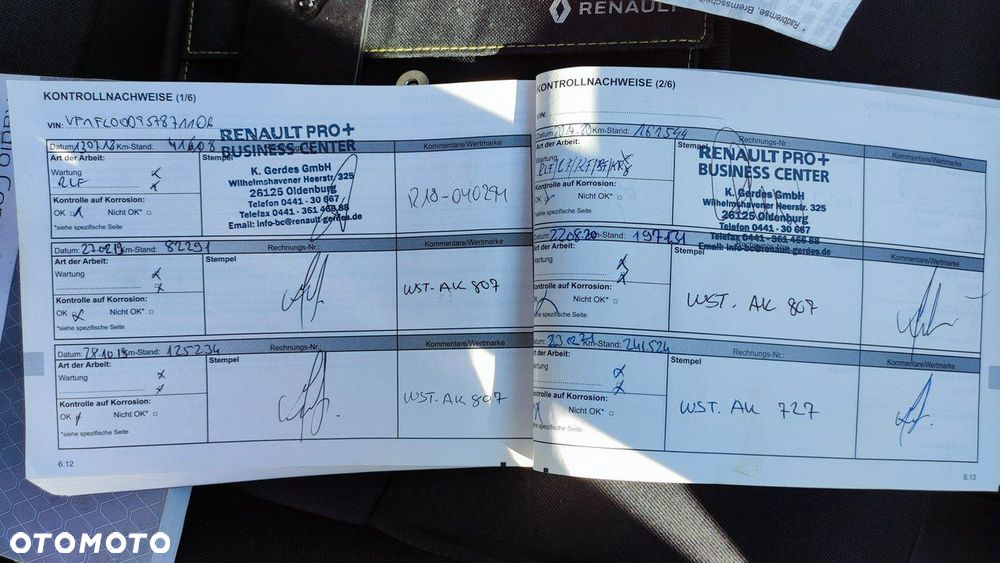 RENAULT
Radbremse, Bremsscheib
KONTROLLNACHWEISE (1/6)
VIN:
Datum: 130718 Km-Stand: 41608
Art der Arbeit:
Stempel
Kommentare/Wertmarke
Wartung
RLF
Kontrolle auf Korrosion:
OK Nicht OK*
*siehe spezifische Seite
RENAULT PRO+
BUSINESS CENTER
K. Gerdes GmbH
Wilhelmshavener Heerstr. 325
26125 Oldenburg
Telefon 0441 - 30 667
Telefax 0441 - 361 466 88
Email: info-bc@renault-gerdes.de
Datum: 270219 Km-Stand: 82291 Rechnungs-Nr.: Kommentare/Wertmarke
Art der Arbeit:
Stempel
Wartung
Kontrolle auf Korrosion:
OK Nicht OK*
*siehe spezifische Seite
WST. AK 807
Datum: 281019 Km-Stand: 125234 Rechnungs-Nr.: Kommentare/Wertmarke
Art der Arbeit:
Stempel
Wartung
Kontrolle auf Korrosion:
OK Nicht OK*
*siehe spezifische Seite
WST. AK 807
6.12
KONTROLLNACHWEISE (2/6)
VIN:
Datum: Km-Stand: 161544 Rechnungs-Nr.: Kommentare/Wertmarke
Art der Arbeit:
Stempel
Wartung
Kontrolle auf Korrosion:
Nicht OK*
*siehe spezifische Seite
RENAULT PRO+
BUSINESS CENTER
K. Gerdes GmbH
Wilhelmshavener Heerstr. 325
26125 Oldenburg
Telefon 0441 - 30 667
Telefax 0441 - 361 466 88
Email: info-bc@renault-gerdes.de
Datum: 220820 Km-Stand: 197131 Kommentare/Wertmarke
Art der Arbeit:
Stempel
Wartung
Kontrolle auf Korrosion:
Nicht OK*
siehe spezifische Seite
WST. AK 807
Datum: Km-Stand: 241524 Rechnungs-Nr.: Kommentare/Wertmarke
Art der Arbeit:
Stempel
Wartung
Kontrolle auf Korrosion:
Nicht OK*
siehe spezifische Seite
WST. AK 727
6.13
OTOMOTO